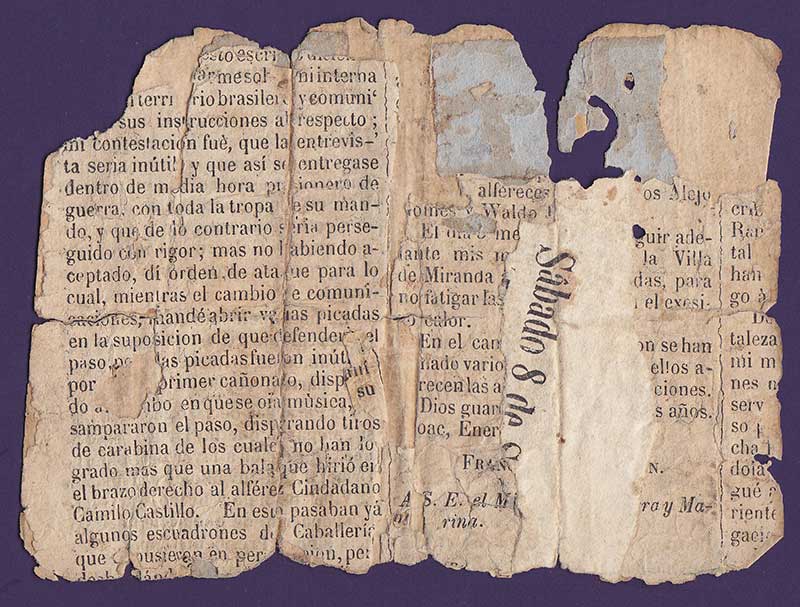 esto escri
darme sol ni interna
territ rio brasiler y comuni‘
sus instrucciones al respecto ;
mi contestacion fuè, que la entrevis-
ta seria inútil y que asi se entregase
dentro de media hora pri ionero de
guerra, con toda la tropa de su man-
do, y que de lo contrario seria perse-
guido con rigor; mas no habiendo a-
ceptado, dí órden de ataque para lo
cual, mientras el cambio de comuni-
caciones, mandé abrir varias picadas
en la suposicion de que defenderia el
paso, las picadas fueron inút
por primer cañonazo, disp
do en que se oia música,
sampararon el paso, disparando tiros
de carabina de los cuales no han lo
grado mas que una bala que hirió en
el brazo derecho al alférez Ciudadano
Camilo Castillo. En esto pasaban yá
algunos escuadrones de Caballería
que pusieran en per
su
alfereces os Alejo
Gomes y Waldo
El me guir ade-
lante mis la Villa
de Miranda das, para
no fatigar las el exesi-
vo calor.
En el can on se han
hado vario ellos a-
recen las a ciones.
Dios guar s años.
oac, Ener
FRAN N.
A S. E. el M ra y Ma-
rina.
Sábado 8 de
tal
han
go à
taleza
mi m
nes n
serv
so
cha
doia
gué
riente
gaci